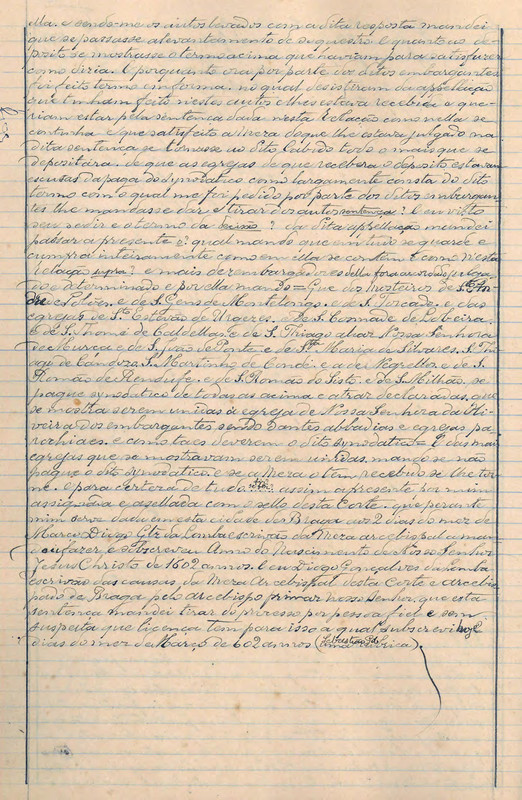 ella. e sendo-me os autos levados com a dita resposta mandei
que se passasse alevantamento de suquestro. E quanto ao de-
posito se mostrasse o termo acima que haviam para satisfazer
como diria. E porquanto ora por parte dos ditos embargantes
foi feito termo em forma. no qual desistiram da appelação
que tinham feito nestes autos e lhes estava recebida e que-
riam estar pela sentença dada nesta Relação como nella se
continha e que satisfeito a Meza do que lhe estava julgado na
dita sentença se tornasse ao dito Cabido todo o mais que se
depositára. de que as egrejas de que recebera o deposito estavam
escusas da paga do synodatico como largamente consta do dito
termo com o qual me foi pedido por parte dos ditos embargan-
tes lhe mandasse dar e tirar dos autos sentença? E eu visto
seu pedir e o termo da desisão? da dita appellação mandei
passar a presente e? qual mando que em tudo se guarde e
cumpra inteiramente como em ella se contem e como nesta
Relação supra? e mais desembargadores della fora acordado julga-
do e determinado e por ella mando = Que dos Mosteiros de S. An-
dré e Solvos. e de S. Gens de Montelongo. e de S. Torcade. e das
egrejas de Sto Estevão de Urgezes. de S. Cosmade de Lobeira.
e de S. Thomé de Caldellas e de S. Thiago aliar Nossa Senhora
de Murca e de S. João de Ponte. e de Sta Maria de Silvares. S. Thi-
ago de Candoso. S. Martinho de Conde. e a de Negrellos e de S.
Romão de Rendufe. e de S. Romão do Sisto. e de S. Milhão. se
pague synodatico de todas as acima e atraz declaradas, que
se mostra serem unidas á egreja de Nossa Senhora da Oli-
veira dos embargantes sendo d'antes abbadias e egrejas pa-
rochiaes. e como taes deverem o dito synodatico = E das mais
egrejas que se mostravam serem unidas, mando se não
pague o dito synodatico. e se a Meza o tem recebido se lhe tor-
ne. e para certeza de tudo assim a presente por mim
assignada e assellada com o sello desta Corte. que perante
mim serve dada em esta cidade de Braga aos 2 dias do mez de
Março Diogo Glz da Lomba escrivão da Meza arcebispal a man-
dou fazer e sobscreveu Anno do Nascimento de Nosso Senhor
Jesus Christo de 1602 annos. E eu Diogo Gonçalves da Lomba
escrivão das causas, da Meza Arcebispal desta Corte e arcebis-
pado de Braga pelo arcebispo primaz nosso Senhor. que esta
sentença mandei tirar do processo por pessoa fiel e sem
suspeita que licença tem para isso a qual subscrevi hoje
dias do mez de Março de 602 annos (Sebastião